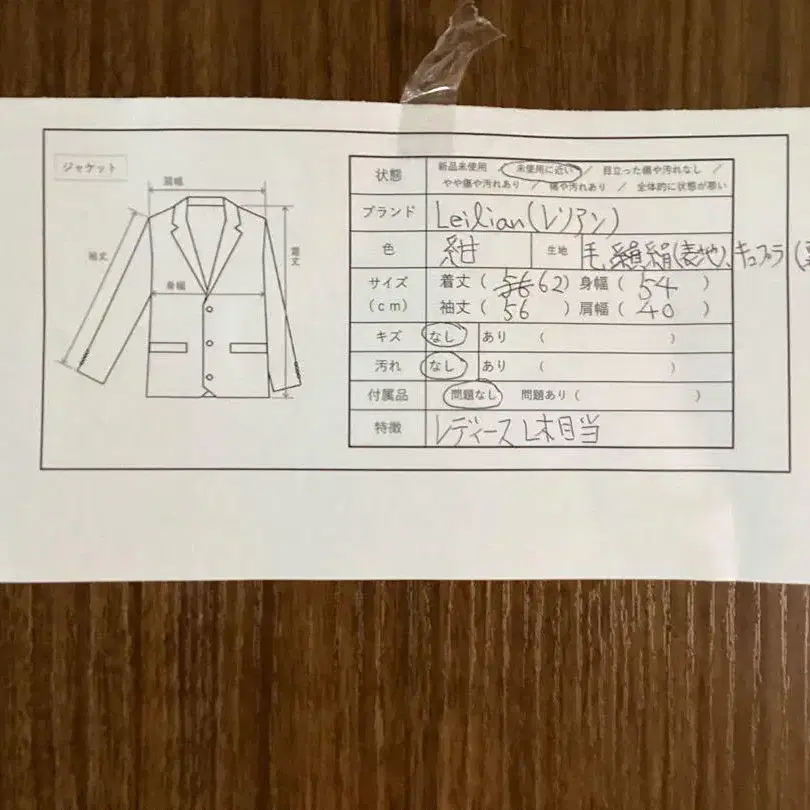 ジャケット
肩幅
袖丈
着丈
身幅
状態 新品未使用 / 未使用に近い / 目立った傷や汚れなし /
やや傷や汚れあり / 傷や汚れあり / 全体的に状態が悪い
ブランド Leilian(レリアン)
色 紺 生地 毛、絹(表地)、キュプラ(
サイズ 着丈( 62 ) 身幅( 54 )
(cm) 袖丈( 56 ) 肩幅( 40 )
キズ なし あり ( )
汚れ なし あり ( )
付属品 問題なし 問題あり ( )
特徴 レディースL相当